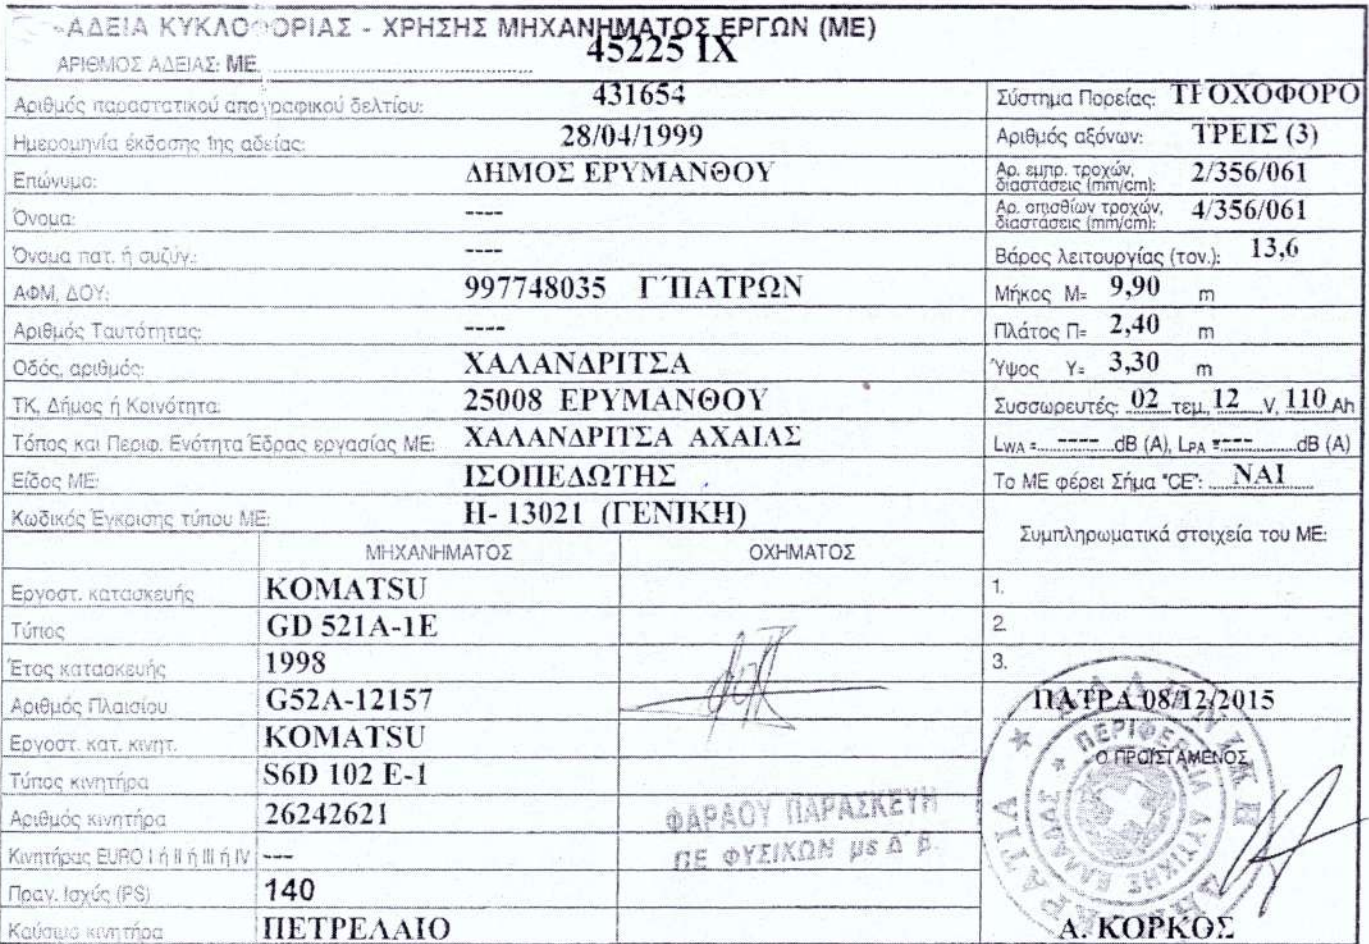 ΑΔΕΙΑ ΚΥΚΛΟΦΟΡΙΑΣ - ΧΡΗΣΗΣ ΜΗΧΑΝΗΜΑΤΟΣ ΕΡΓΩΝ (ΜΕ)
ΑΡΙΘΜΟΣ ΑΔΕΙΑΣ: ΜΕ 45225 ΙΧ
Αριθμός παραστατικού απογραφικού δελτίου: 431654
Ημερομηνία έκδοσης 1ης αδείας: 28/04/1999
Επώνυμο: ΔΗΜΟΣ ΕΡΥΜΑΝΘΟΥ
Όνομα: ----
Όνομα πατ. ή συζύγ.: ----
ΑΦΜ, ΔΟΥ: 997748035 Γ΄ΠΑΤΡΩΝ
Αριθμός Ταυτότητας: ----
Οδός, αριθμός: ΧΑΛΑΝΔΡΙΤΣΑ
ΤΚ, Δήμος ή Κοινότητα: 25008 ΕΡΥΜΑΝΘΟΥ
Τόπος και Περιφ. Ενότητα Έδρας εργασίας ΜΕ: ΧΑΛΑΝΔΡΙΤΣΑ ΑΧΑΙΑΣ
Είδος ΜΕ: ΙΣΟΠΕΔΩΤΗΣ
Κωδικός Έγκρισης τύπου ΜΕ: Η- 13021 (ΓΕΝΙΚΗ)
Σύστημα Πορείας: ΤΡΟΧΟΦΟΡΟ
Αριθμός αξόνων: ΤΡΕΙΣ (3)
Αρ. εμπρ. τροχών, διαστάσεις (mm/cm): 2/356/061
Αρ. οπισθίων τροχών, διαστάσεις (mm/cm): 4/356/061
Βάρος λειτουργίας (τον.): 13,6
Μήκος Μ= 9,90 m
Πλάτος Π= 2,40 m
Ύψος Υ= 3,30 m
Συσσωρευτές: 02 τεμ., 12 V, 110 Ah
LWA =---- dB (A), LPA =---- dB (A)
Το ΜΕ φέρει Σήμα "CE": ΝΑΙ
Συμπληρωματικά στοιχεία του ΜΕ:
1.
2.
3.
ΜΗΧΑΝΗΜΑΤΟΣ ΟΧΗΜΑΤΟΣ
Εργοστ. κατασκευής KOMATSU
Τύπος GD 521A-1E
Έτος κατασκευής 1998
Αριθμός Πλαισίου G52A-12157
Εργοστ. κατ. κινητ. KOMATSU
Τύπος κινητήρα S6D 102 E-1
Αριθμός κινητήρα 26242621
Κινητήρας EURO I ή II ή III ή IV ---
Πραγ. Ισχύς (PS) 140
Καύσιμο κινητήρα ΠΕΤΡΕΛΑΙΟ
ΦΑΡΑΟΥ ΠΑΡΑΣΚΕΥΗ
ΠΕ ΦΥΣΙΚΩΝ με Δ΄ β.
ΠΑΤΡΑ 08/12/2015
Ο ΠΡΟΪΣΤΑΜΕΝΟΣ
ΕΛΛΗΝΙΚΗ ΔΗΜΟΚΡΑΤΙΑ
ΠΕΡΙΦΕΡΕΙΑ ΔΥΤΙΚΗΣ ΕΛΛΑΔΑΣ
Α. ΚΟΡΚΟΣ